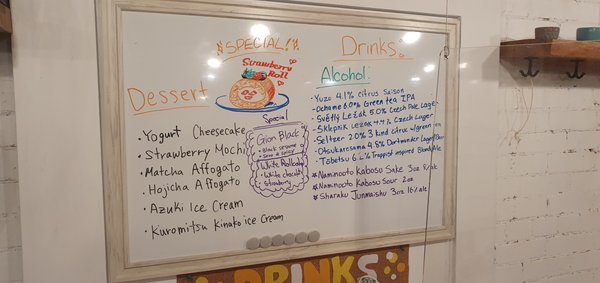 SPECIAL!
Strawberry
Roll
Dessert
• Yogurt Cheesecake
• Strawberry Mochi
• Matcha Affogato
• Hojicha Affogato
• Azuki Ice Cream
• Kuromitsu Kinako ice Cream
Special
Gion Black
• Black sesame
White Rollbaby
• White chocolate
Strawberry
Drinks:
Alcohol:
• Yuzu 4.1% citrus Saison
• Ochame 6.0% Green tea IPA
• Světlý Ležák 5.0% Czech Pale Lager
• Sklepník Ležák 4.4% Czech Lager
• Seltzer 2.0% 3 kind citrus w/green tea
• Otsukaresama 4.8% Dortmunder Lager Beer
• Tabetsu 6.2% Trappist inspired Blonde Ale
* Naminooto Kabosu Sake 3oz 8% ale
* Naminooto Kabosu Sour 2oz
* Sharaku Junmaishu 3oz 16% ale
DRINKS